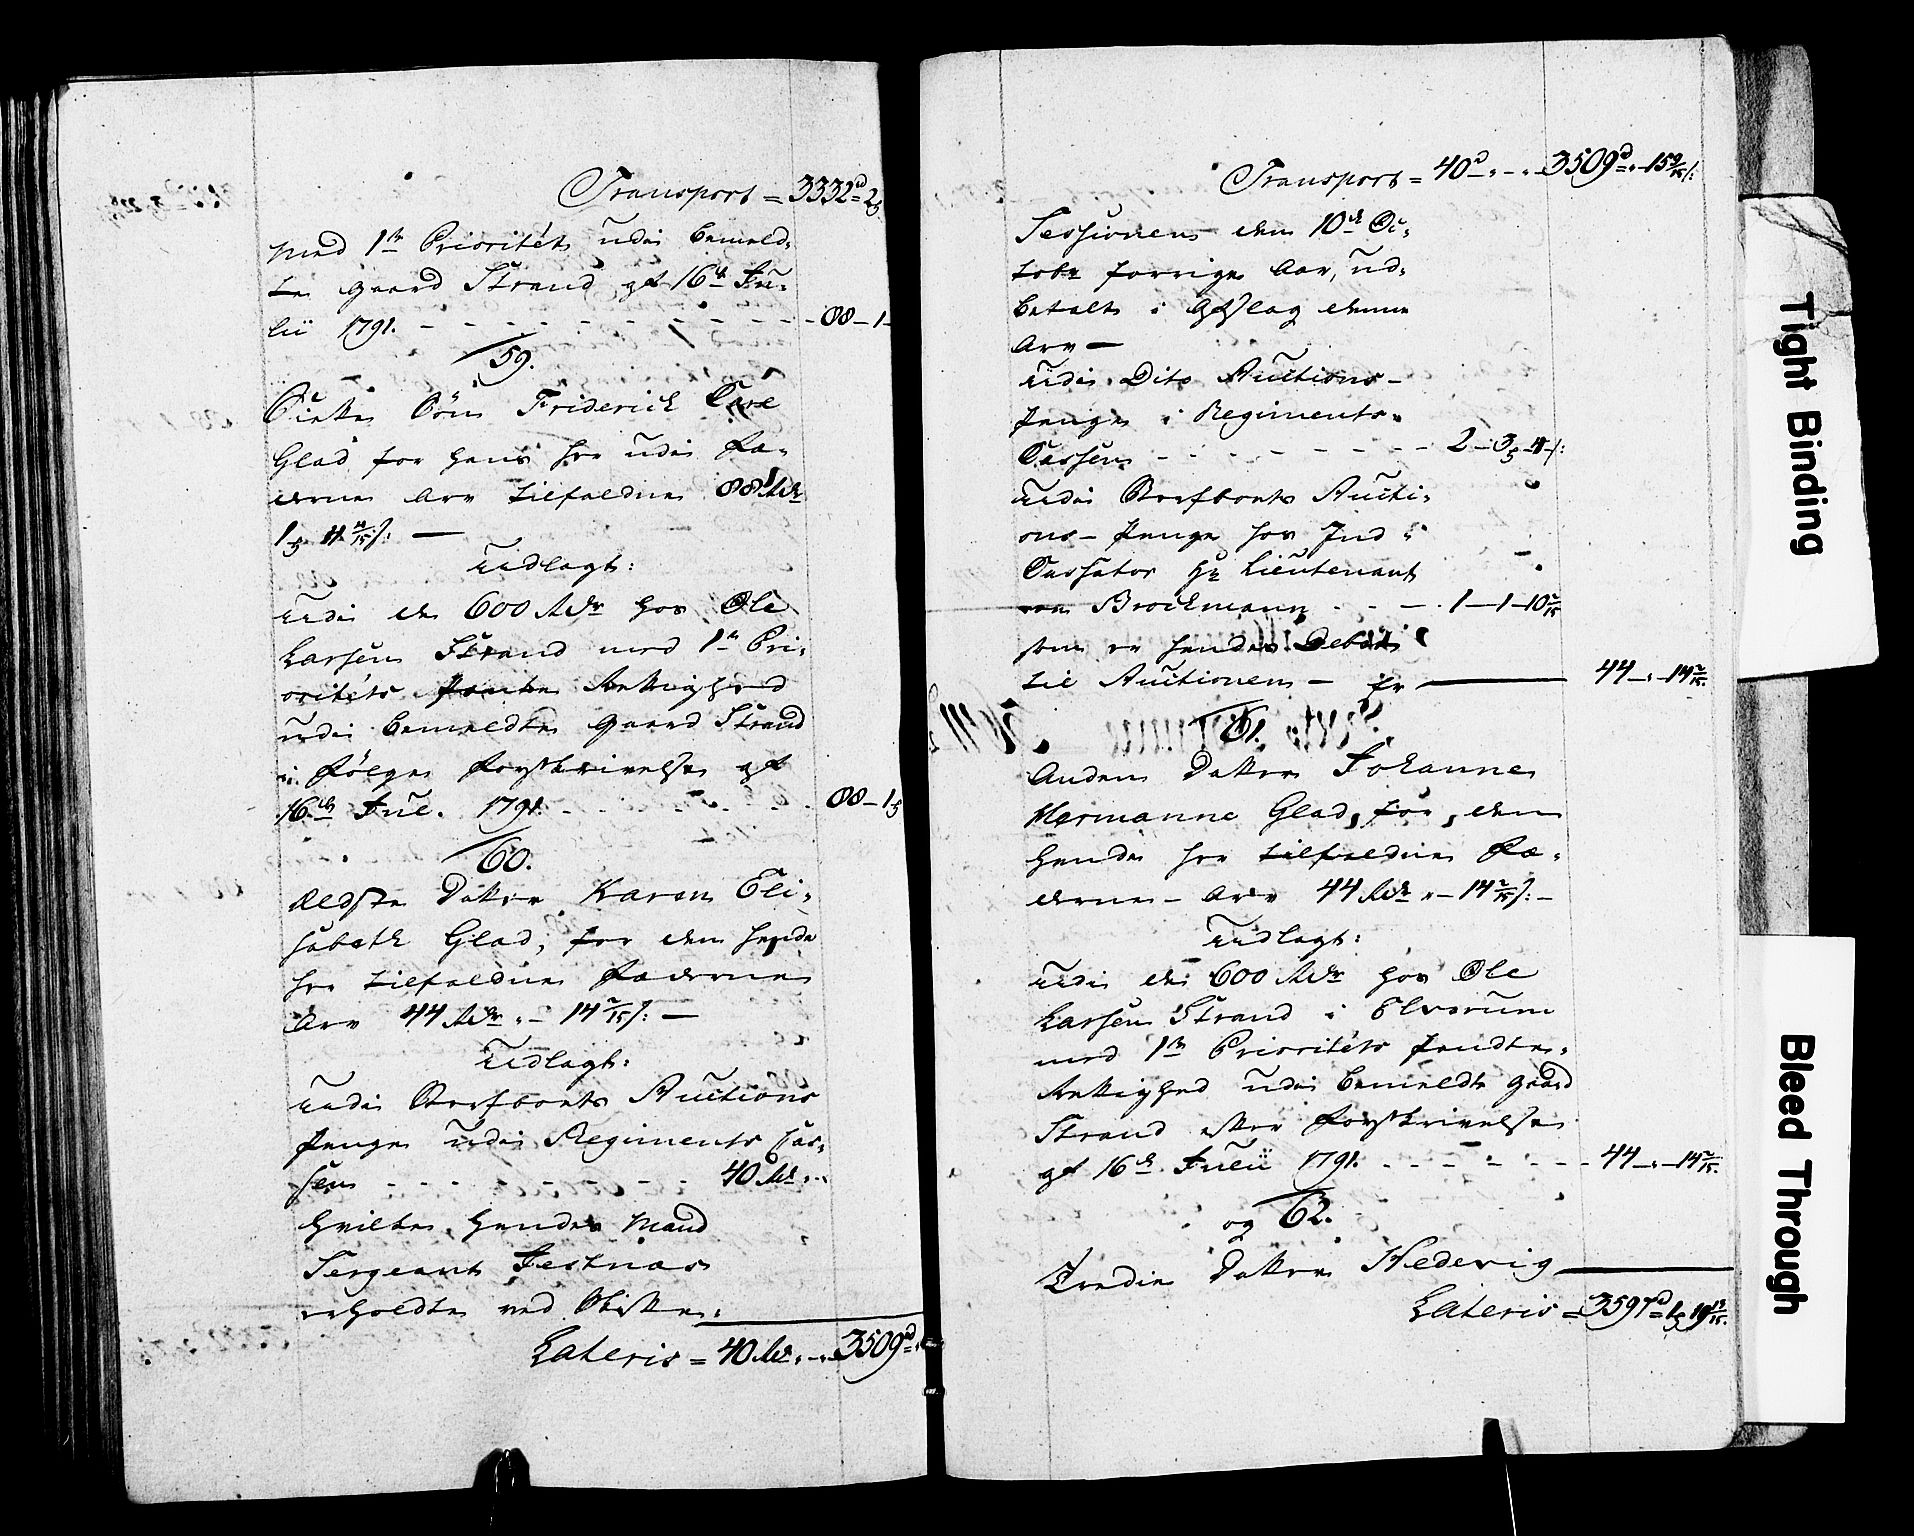 Transport = 3332 d = 2
med 1te Prioritét udi bemeld-
te gaard Strand af 16de Ju-
lii 1791. - - - 88 - 1 -
59.
Siette Søn Friderich Owe
Glad for hans her udi Fæ-
derne Arv tilfaldne 88 Rdr
1 11 4/15 s: —
Udlagt:
udi de 600 Rdr hos Ole
Larsen Strand med 1te Pri-
oritéts Pante Rettighed
udi bemeldte gaard Strand
i Følge Forskrivelse af
16de Jul. 1791. - - - 88 - 1
60.
Ældste Datter Karen Eli-
sabeth Glad, for den hende
her tilfaldne Fæderne
Arv 44 Rdr " - 14 2/15 s: —
Udlagt:
udi Sterfboets Auctions
Penge udi Regiments Cas-
sen - - - 40 Rd " -
hvilke hendes Mand
Sergeant Jestnæs
erholdte ved Skifte-
Lateris = 40 Rd " - 3509 d = "
Transport = 40 d " - " - 3509 d " - 15 9/15 s:
Sessionen den 10de Oc-
tobr forrige Aar, ud-
betalt i Afslag denne
Arv —
udi Dito Auctions-
Penge i Regiments-
Cassen - - - 2 - 3 - 4 s:
udi Sterfboets Aucti-
ons-Penge hos Ind-
Cassator Hr Lieutenant
von Brockmann - - - 1 - 1 - 10 2/15
som er hendes Debet
til Auctionen - Er — 44 - " - 14 2/15.
61.
Anden Datter Johanne
Hermanne Glad, for, den
hende her tilfaldne Fæ-
derne - Arv 44 Rdr " - 14 2/15 s: -
Udlagt:
udi de 600 Rdr hos Ole
Larsen Strand i Elverum
med 1te Prioritéts Pandte-
Rettighed udi bemeldte gaard
Strand efter Forskrivelse
af 16de Julii 1791. - - - 44 - " - 14 2/15.
og 62.
Tredie Datter Hedevig —
Lateris = 3597 d = 1 - 19 13/15.
Tight Binding
Bleed Through